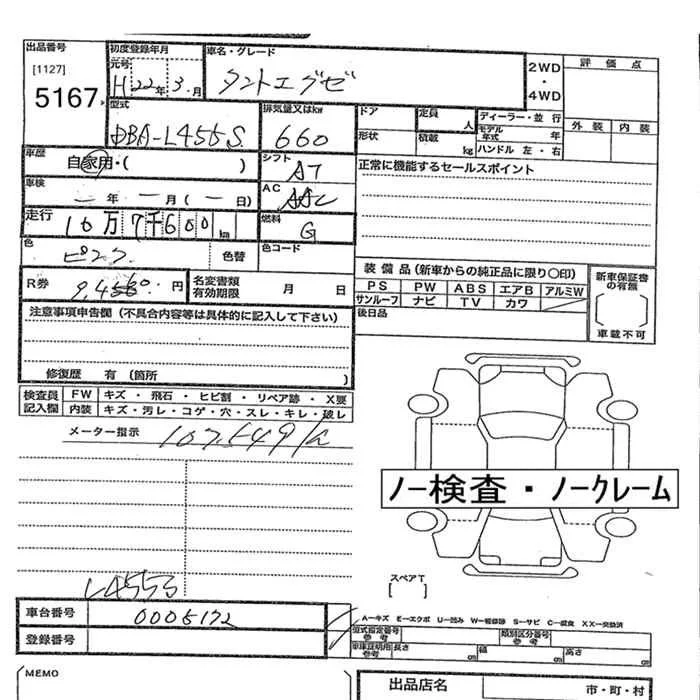 出品番号 初度登録年月 車名・グレード
[1127] 元号 2WD 評価点
5167 H 22年 3.月 タントエグゼ ・
4WD
型式 排気量又はkw ドア 定員 人 ディーラー・並行 外装 内装
DBA-L455S 660 形状 積載 kg モデル年式 年
ハンドル 左・右
車歴 自家用・( ) シフト AT 正常に機能するセールスポイント
車検 ー年 ー月(ー日) AC AAC
走行 10万7千600km 燃料 G
色 ピンク 色替 色コード
R券 円 名変書類有効期限 月 日 装備品(新車からの純正品に限り〇印) 新車保証書の有無
PS PW ABS エアB アルミW
サンルーフ ナビ TV カワ
注意事項申告欄(不具合内容等は具体的に記入して下さい) 後日品 車載不可
修復歴 有(箇所 )
検査員記入欄 FW キズ・飛石・ヒビ割・リペア跡・X要
内装 キズ・汚レ・コゲ・穴・スレ・キレ・破レ
メーター指示 107,549k
ノー検査・ノークレーム
スペアT
[ ]
L455S
車台番号 0005172 A−キズ E−エクボ U−凹み W−補修跡 S−サビ C−腐食 XX−交換済
登録番号 型式指定番号 参考 類別区分番号 参考
車庫証明用 参考 長さ ㎝ 幅 ㎝ 高さ ㎝
MEMO 出品店名 市・町・村